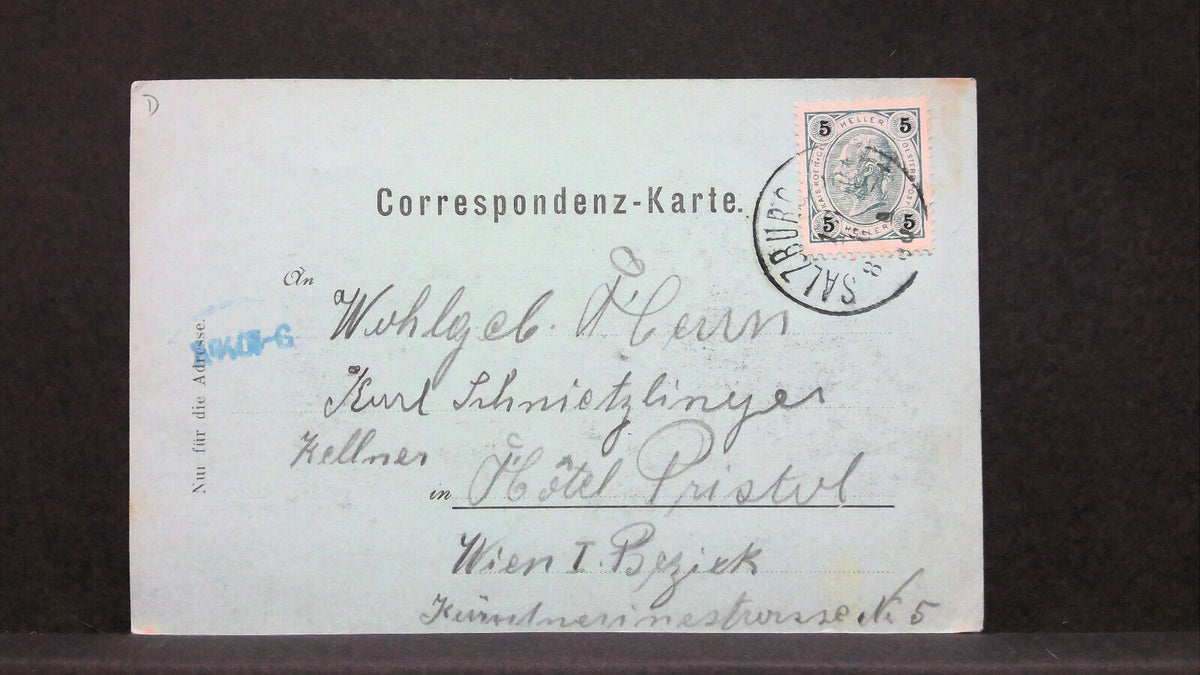 D
Correspondenz-Karte.
5 HELLER 5
KAIS. KOENIGL. OESTERR. POST
5 HELLER 5
SALZBURG
An
Wohlgeb. Herrn
Nur für die Adresse.
Karl Schnietzlinger
Kellner
in Hôtel Pristol
Wien I. Bezirk
Kärntnerinestrasse Nr. 5